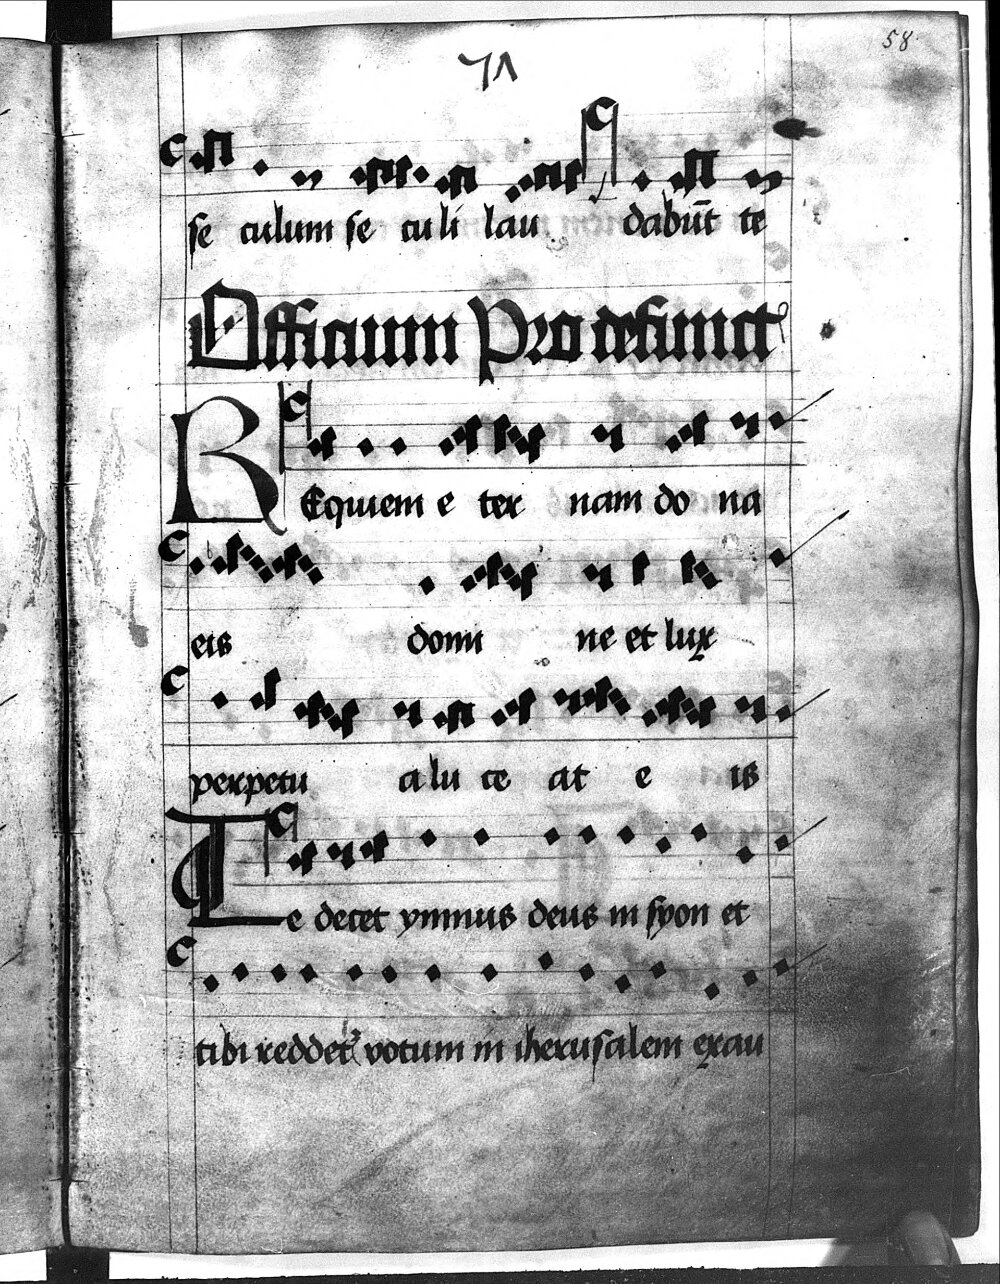 58
se culum se culi lau dabūt te
Officium Pro defunct
REquiem e ter nam do na
eis domi ne et lux
perpetu a lu ce at e is
Te decet ymnus deus in syon et
tibi reddet᷑ votum in iherusalem exau